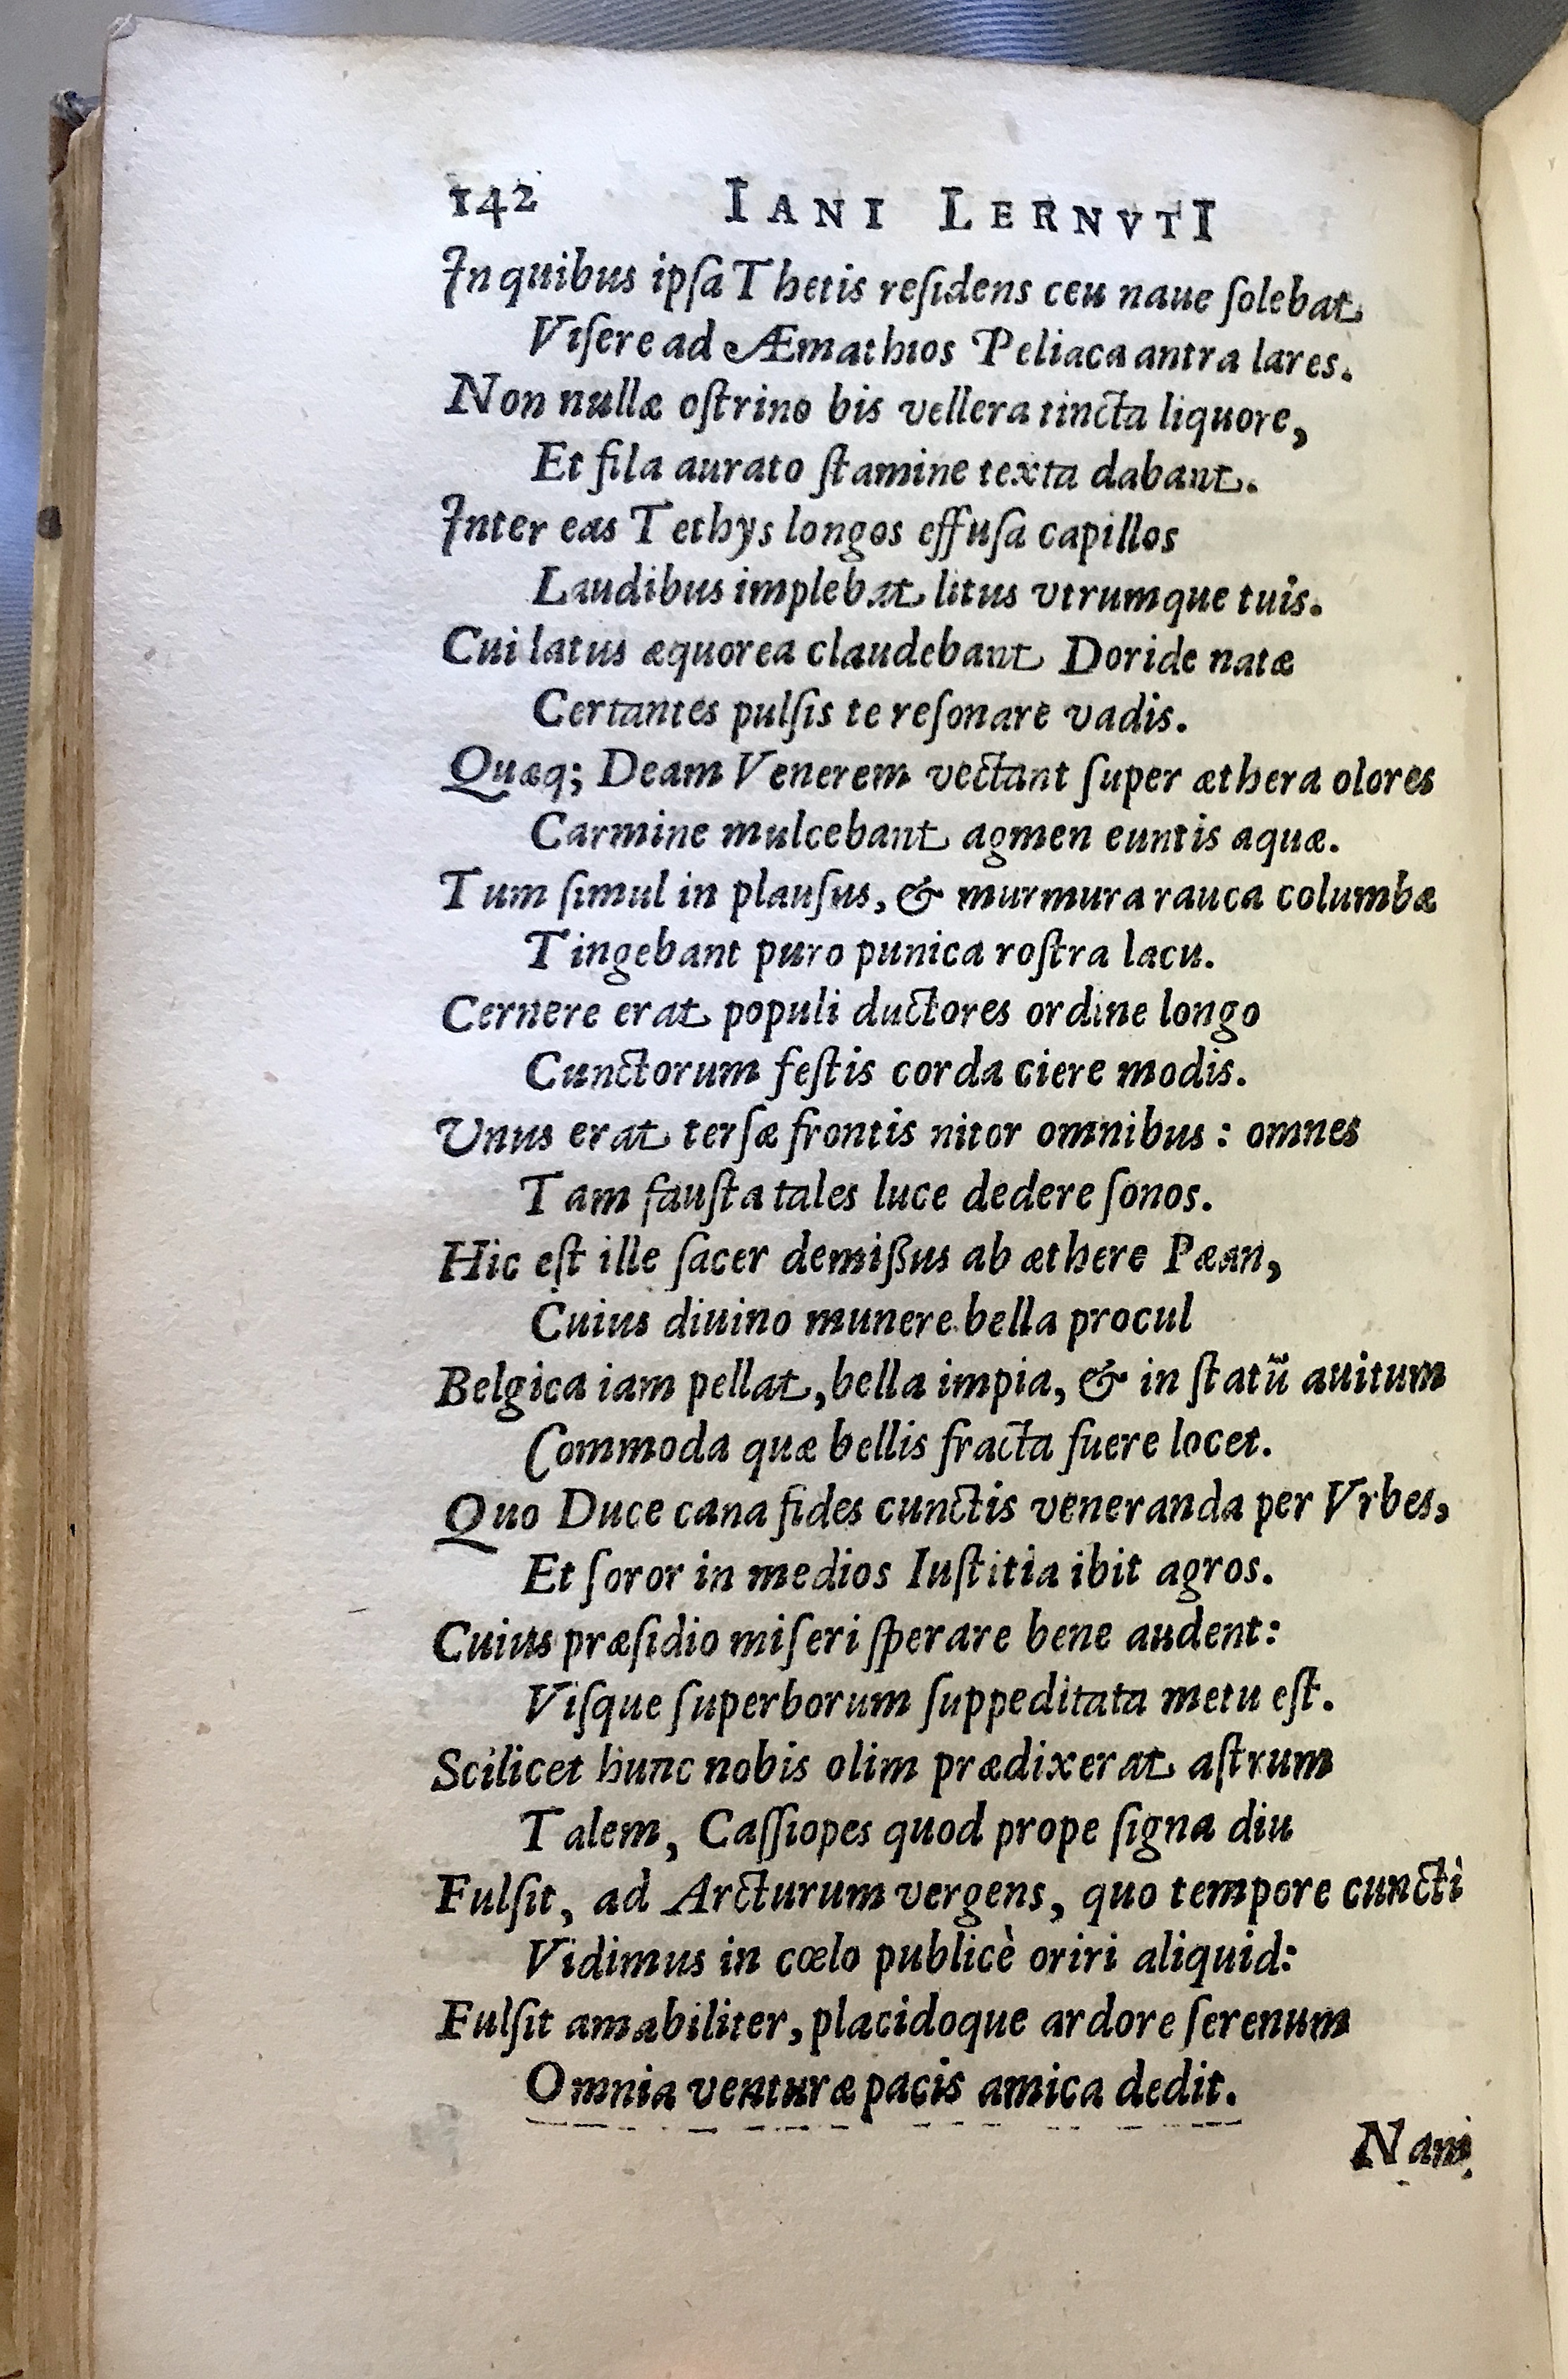 142 IANI LERNVTI
In quibus ipſa Thetis reſidens ceu naue ſolebat
Viſere ad Æmathios Peliaca antra lares.
Non nullæ oſtrino bis vellera tincta liquore,
Et fila aurato ſtamine texta dabant.
Inter eas Tethys longos effuſa capillos
Laudibus implebat litus vtrumque tuis.
Cui latus æquorea claudebant Doride natæ
Certantes pulſis te reſonare vadis.
Quæq; Deam Venerem vectant ſuper æthera olores
Carmine mulcebant agmen euntis aquæ.
Tum ſimul in plauſus, & murmura rauca columbæ
Tingebant puro punica roſtra lacu.
Cernere erat populi ductores ordine longo
Cunctorum feſtis corda ciere modis.
Unus erat terſæ frontis nitor omnibus: omnes
Tam fauſta tales luce dedere ſonos.
Hic eſt ille ſacer demißus ab æthere Pæan,
Cuius diuino munere bella procul
Belgica iam pellat, bella impia, & in ſtatũ auitum
Commoda quæ bellis fracta fuere locet.
Quo Duce cana fides cunctis veneranda per Vrbes,
Et ſoror in medios Iuſtitia ibit agros.
Cuius præſidio miſeri ſperare bene audent:
Viſque ſuperborum ſuppeditata metu eſt.
Scilicet hunc nobis olim prædixerat aſtrum
Talem, Caſſiopes quod prope ſigna diu
Fulſit, ad Arcturum vergens, quo tempore cuncti
Vidimus in cœlo publicè oriri aliquid:
Fulſit amabiliter, placidoque ardore ſerenum
Omnia venturæ pacis amica dedit.
Nam